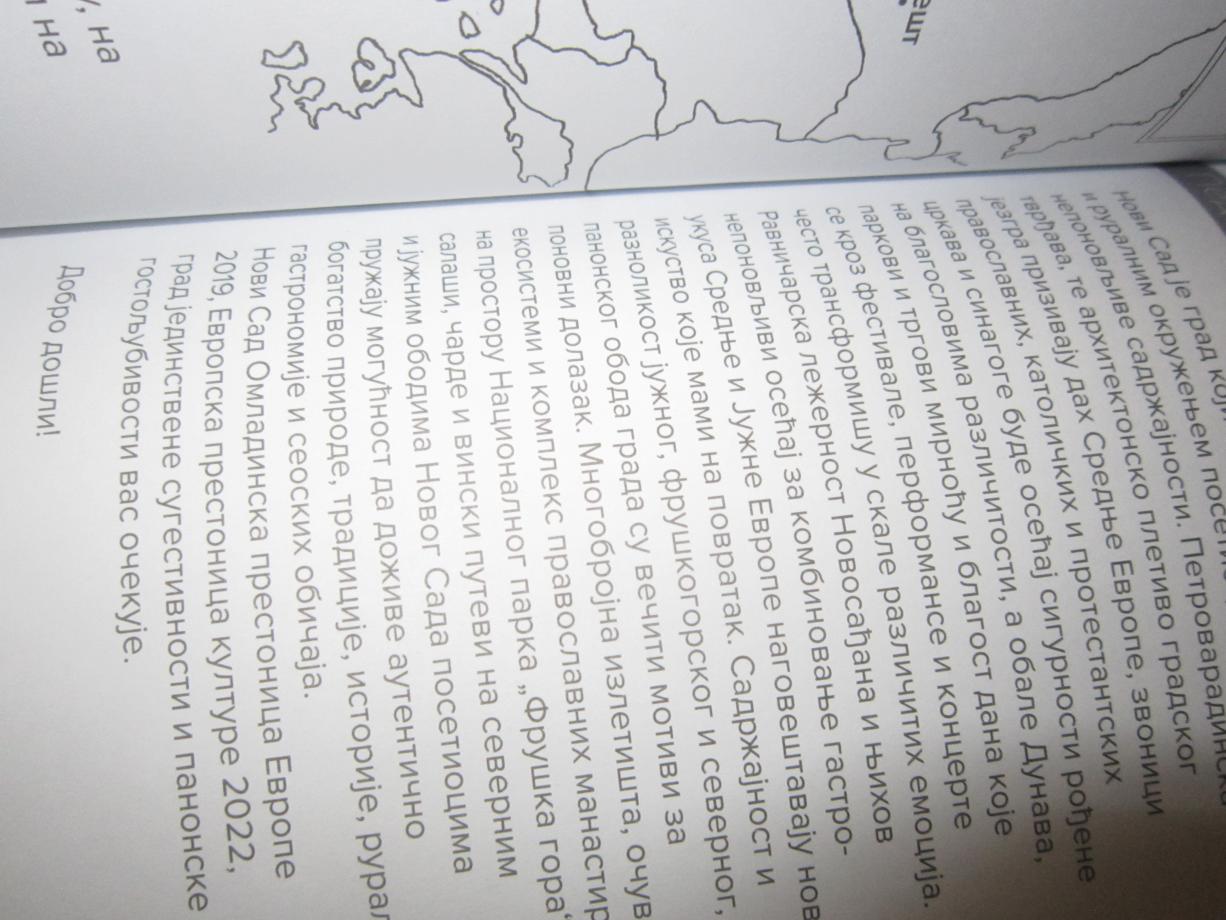 у, на
и на
ешт
Нови Сад је град који
и руралним окружењем
непоновљиве садржајности. Петроварадинска
тврђава, те архитектонско плетиво градског
језгра призивају дах Средње Европе, звоници
православних, католичких и протестантских
цркава и синагоге буде осећај сигурности рођене
на благословима различитости, а обале Дунава,
паркови и тргови мирноћу и благост дана које
се кроз фестивале, перформансе и концерте
често трансформишу у скале различитих емоција.
Равничарска лежерност Новосађана и њихов
непоновљиви осећај за комбиновање гастро-
укуса Средње и Јужне Европе наговештавају нов
искуство које мами на повратак. Садржајност и
разноликост јужног, фрушкогорског и северног,
панонског обода града су вечити мотиви за
поновни долазак. Многобројна излетишта, очув
екосистеми и комплекс православних манастир
на простору Националног парка „Фрушка гора“
салаши, чарде и вински путеви на северним
и јужним ободима Новог Сада посетиоцима
пружају могућност да доживе аутентично
богатство природе, традиције, историје, рурал
гастрономије и сеоских обичаја.
Нови Сад Омладинска престоница Европе
2019, Европска престоница културе 2022,
град јединствене сугестивности и панонске
гостољубивости вас очекује.
Добро дошли!